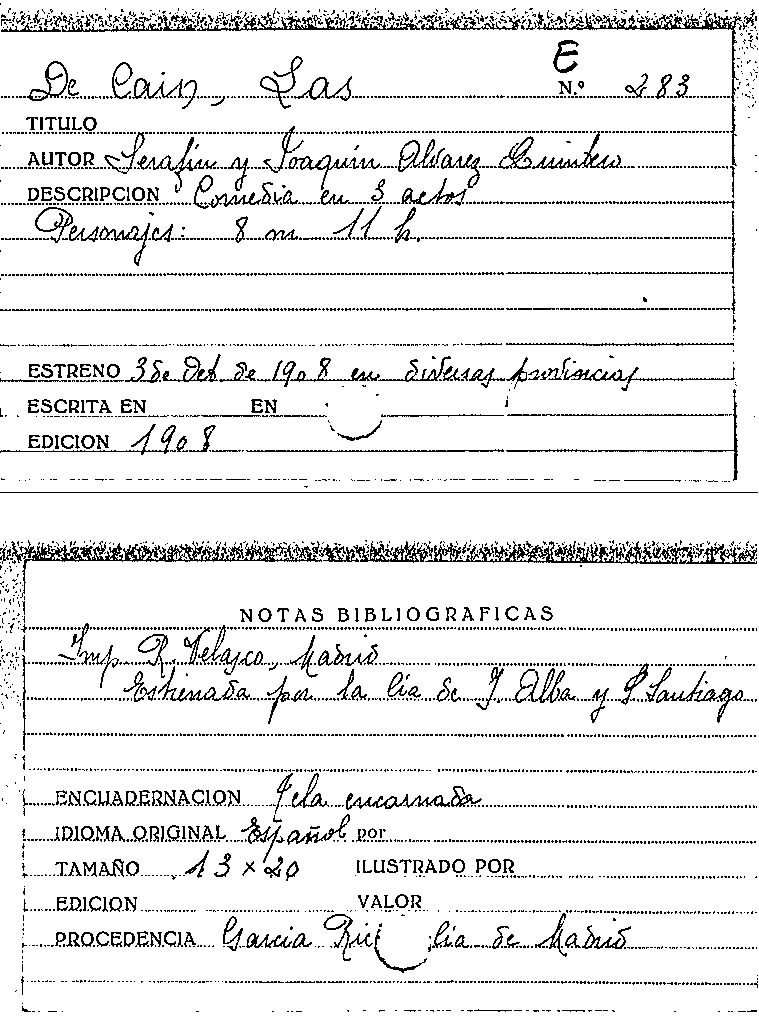 E
De Cain, Las N.º 283
TITULO
AUTOR Serafin y Joaquin Alvarez Quintero
DESCRIPCION Comedia en 3 actos
Personajes: 8 m 11 h.
ESTRENO 3 de Oct de 1908 en diversas provincias
ESCRITA EN EN
EDICION 1908
NOTAS BIBLIOGRAFICAS
Imp. R. Velasco, Madrid
Estrenada por la Cia de J. Alba y P. Santiago
ENCUADERNACION Tela encarnada
IDIOMA ORIGINAL Español por
TAMAÑO 13 x 20 ILUSTRADO POR
EDICION VALOR
PROCEDENCIA Garcia cia de Madrid